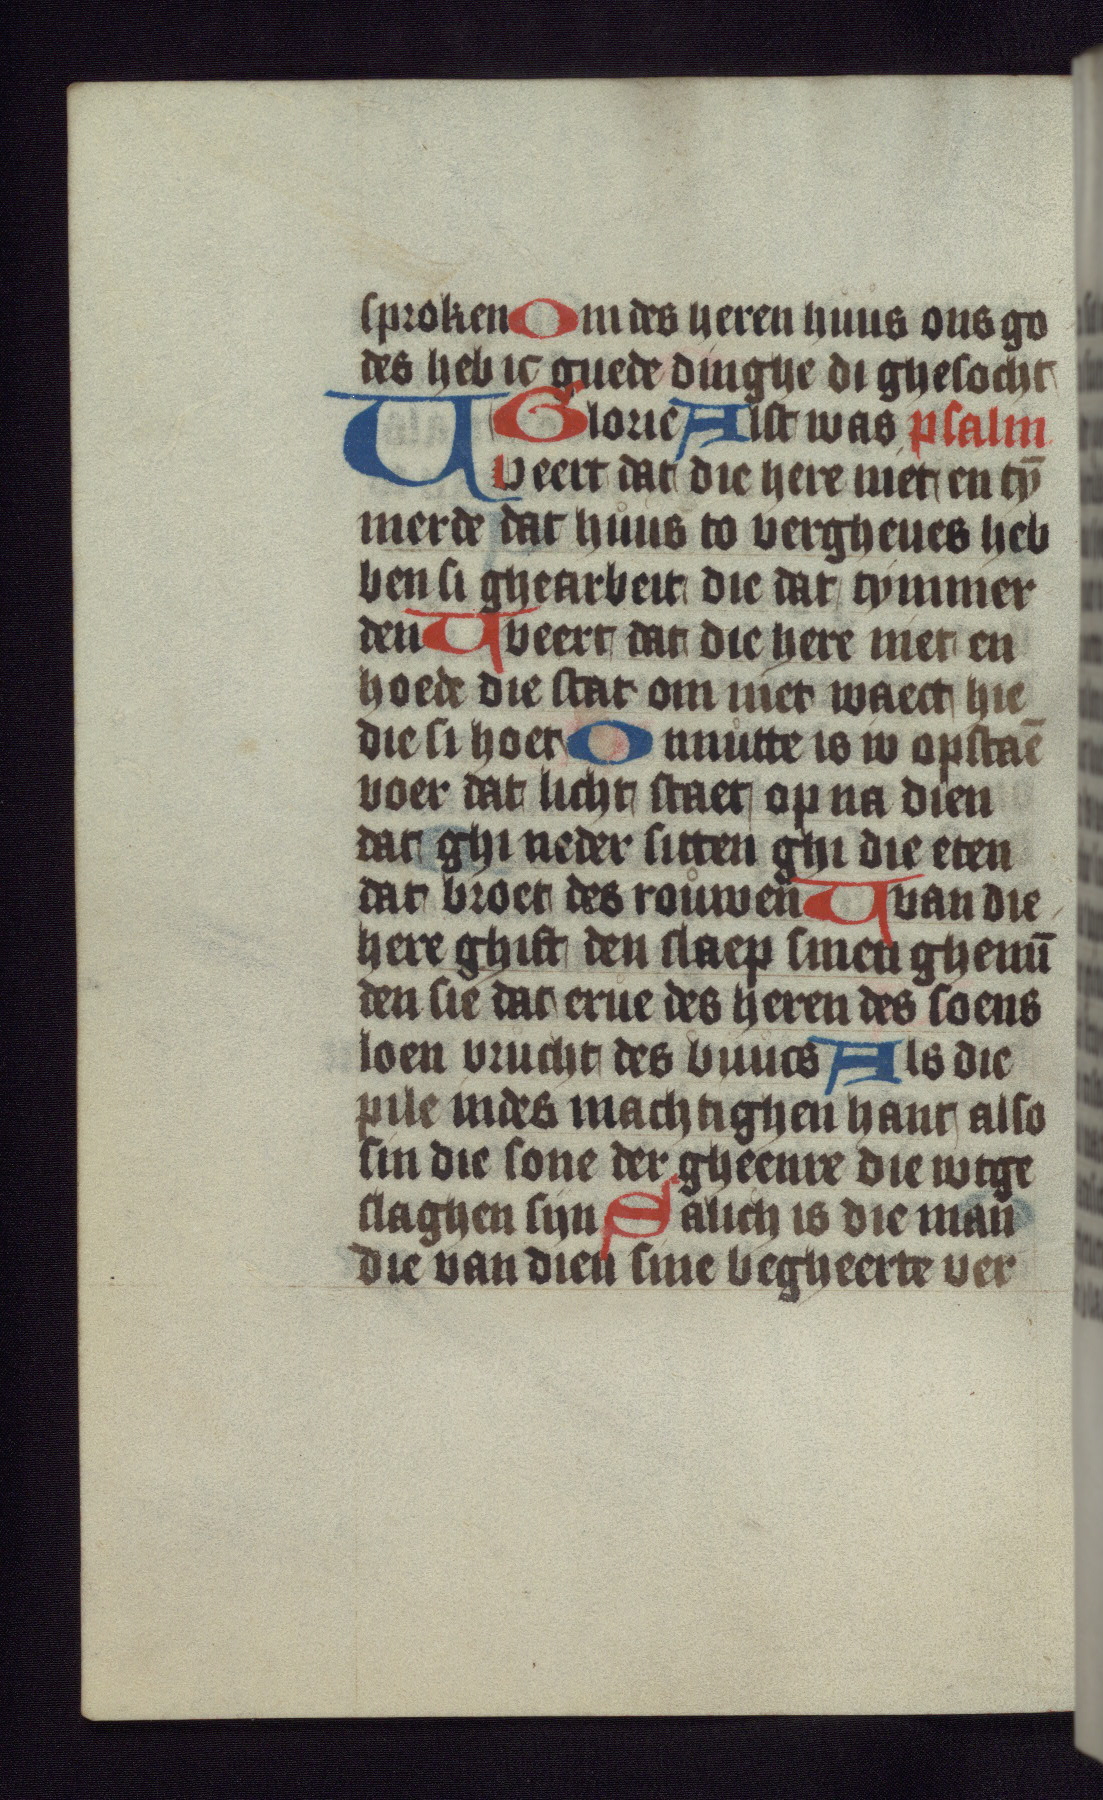 sproken Om des heren huus ons go
des heb ic guede dinghe di ghesocht
Glorie Alst was psalm
Uveert dat die here niet en tȳ
merde dat huus to vergheues heb
ben si ghearbeit die dat tymmer
den Uveert dat die here niet en
hoede die stat om niet waect hie
die si hoet Onnutte is iw opstaē
voer dat licht staet op na dien
dat ghi neder sitten ghi die eten
dat broet des rouwen Uvan die
here ghift den slaep sinen ghemīī
den sie dat erue des heren des soens
loen vrucht des buucs Als die
pile indes machtighen hant also
sin die sone der gheenre die wtge
slaghen sijn Salich is die man
die van dien sine begheerte ver